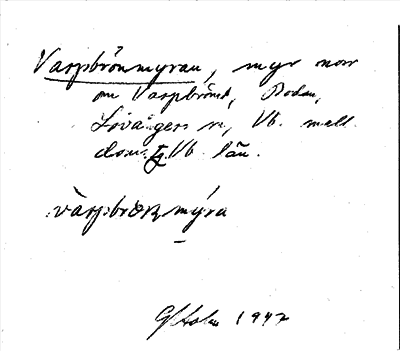 Varpbrönmyran, myr norr
om Varpbrönet, Bodan,
Lövångers sn, Vb. mell.
doms. Vb. län.
vàrpbrønmýra
G Holm 1947